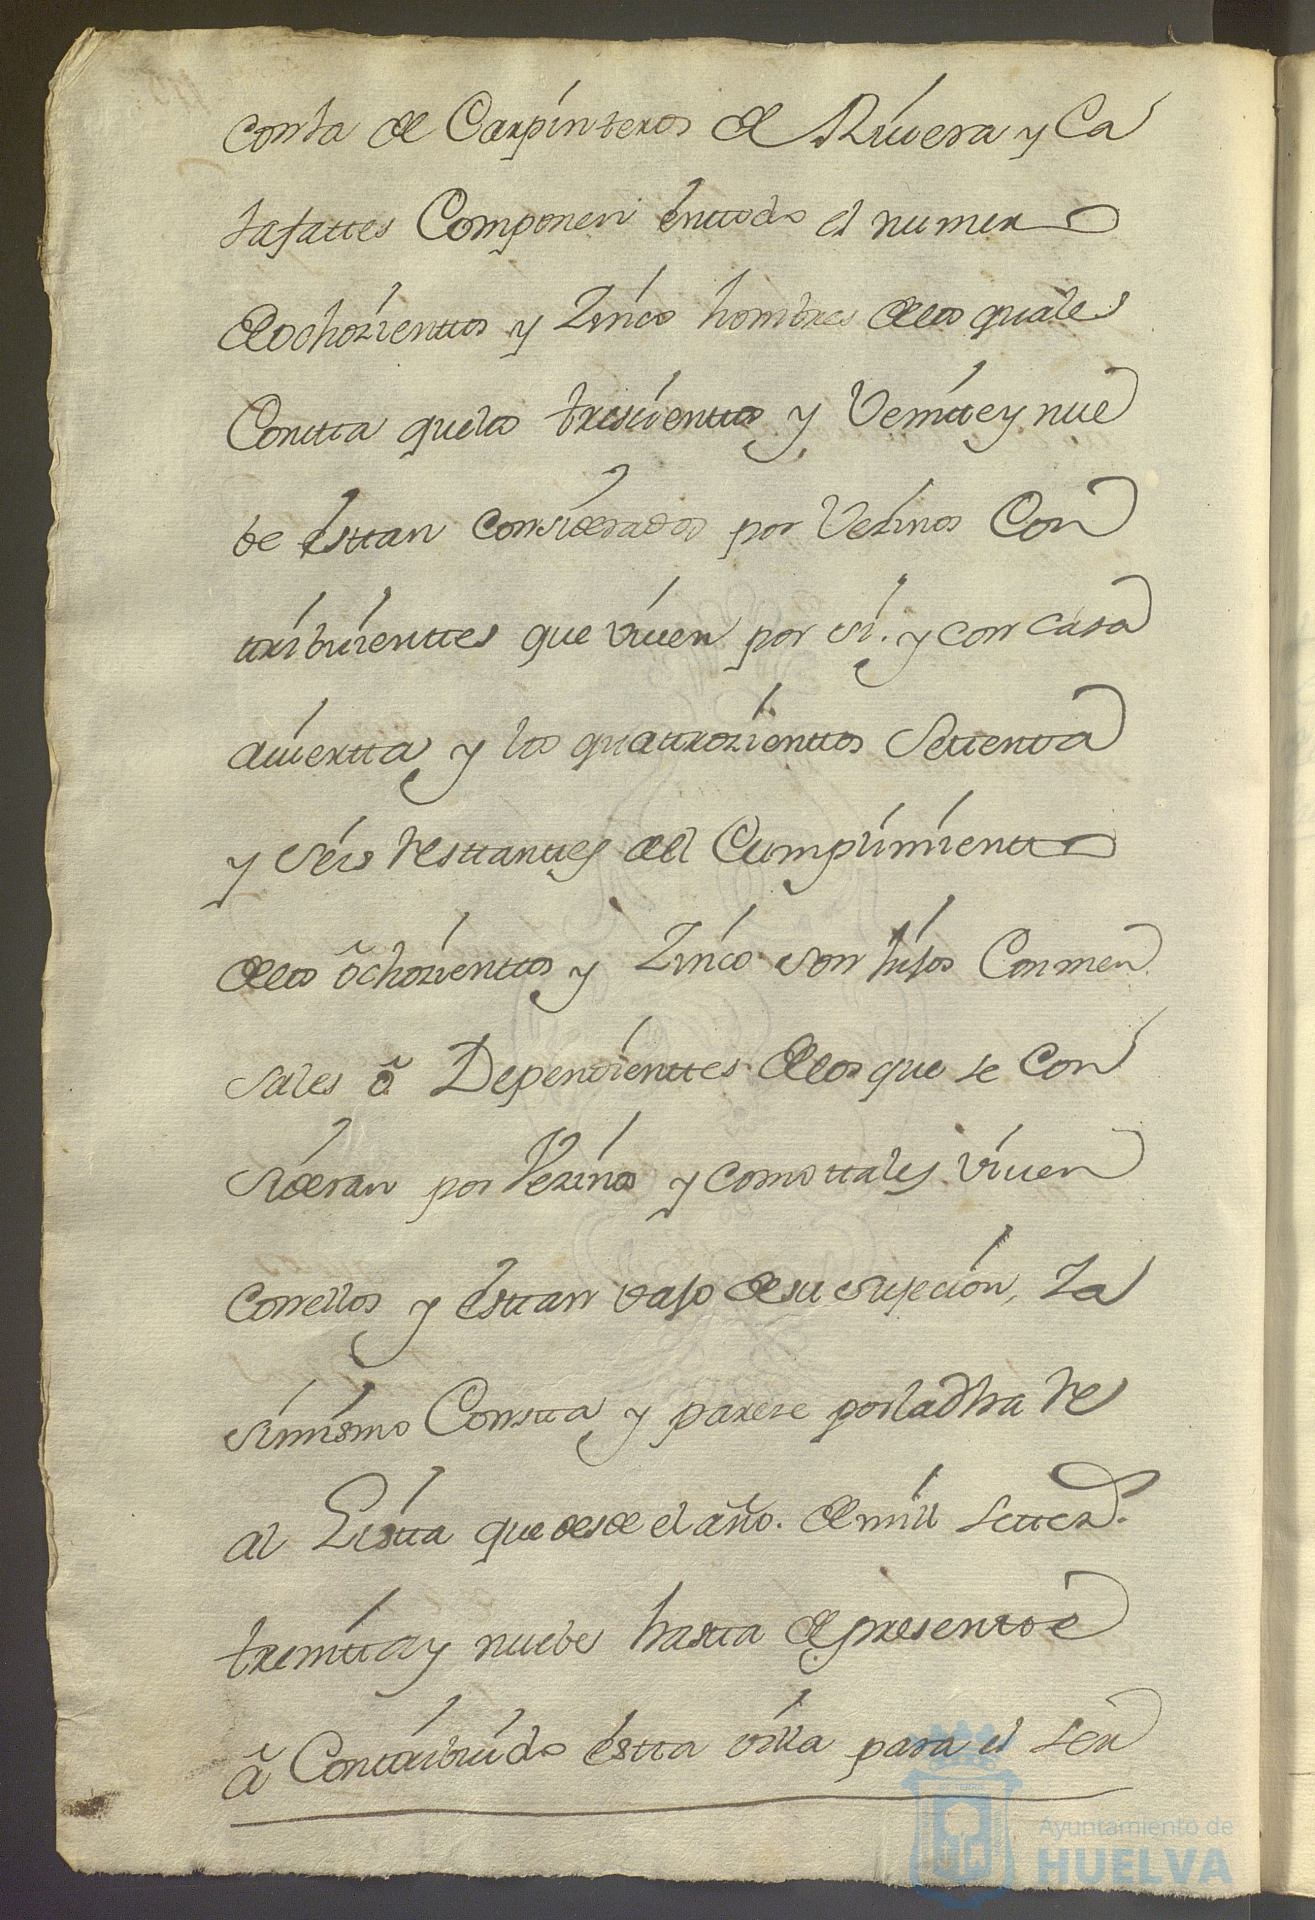 conta de Carpinteros de Riuera y Ca
lafattes Componen enttodo el numero
deochozienttos y Zinco hombres delos quales
Constta quelos trescienttos y Veintte y nue
be esttan considerados por Vezinos Con
ttribuienttes que viuen por si. y con casa
auiertta, y los quattrozienttos Settenta
y seis resttanttes del Cumplimientto
delos ochozienttos y Zinco son hijos Conmen
sales ò Dependienttes delos que se Con
sideran por Vezinos y como ttales viuen
conellos y esttan vajo de su sujecion, Za
simismo Constta y pareze porladha Re
al Listta que desde el año. de mill settez.
treintta y nuebe hasta de presente è
à Conttribuido estta villa para el ser
Ayuntamiento de
HUELVA